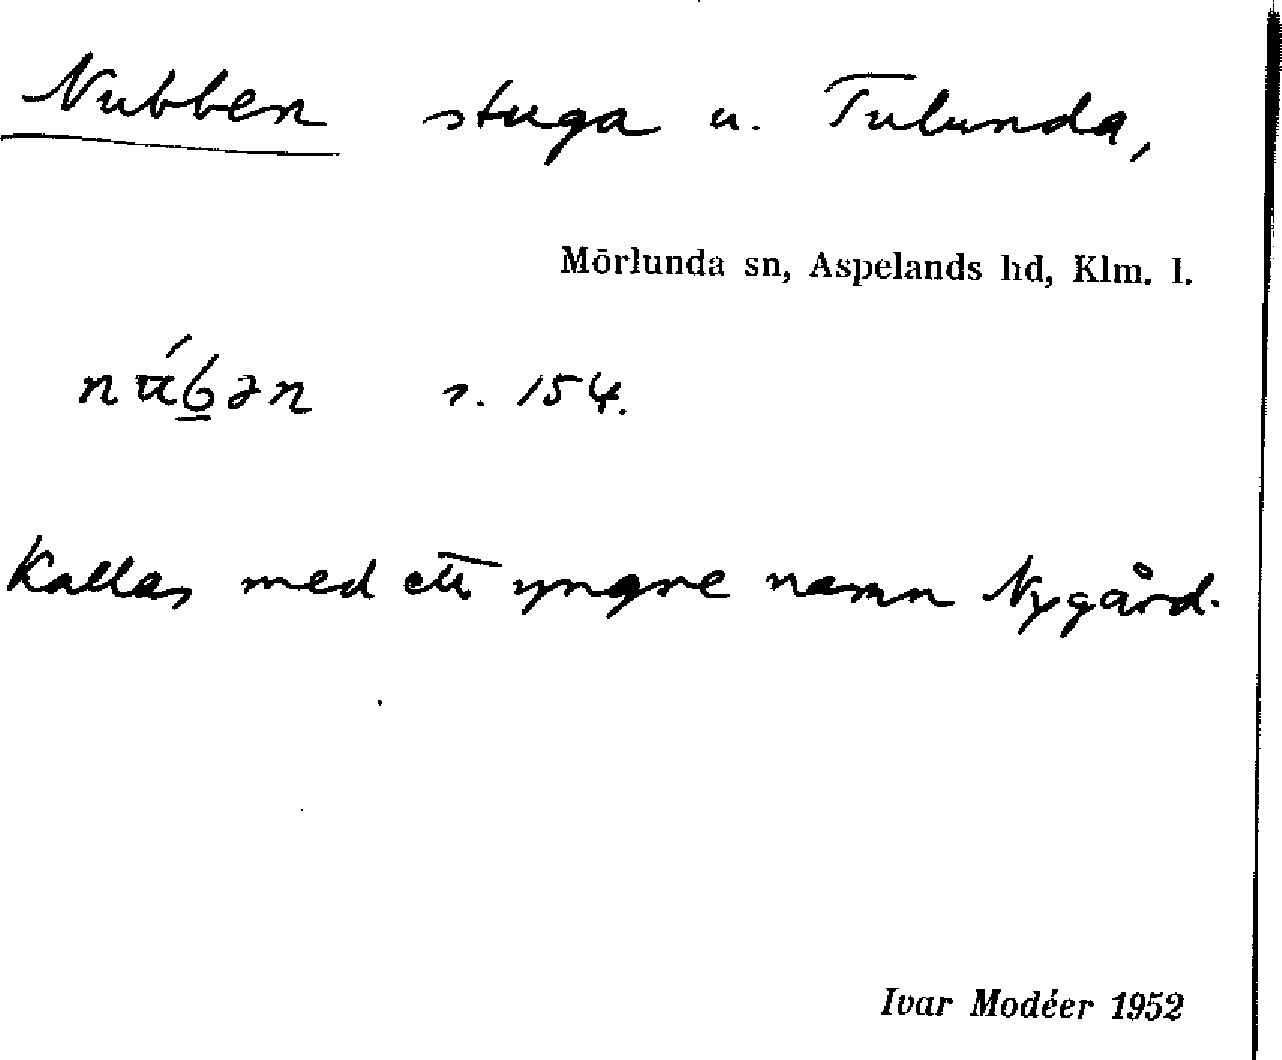 Nubben stuga u. Tulunda,
Mörlunda sn, Aspelands hd, Klm. l.
nú̄b̲ən s. 154.
Kallas med ett yngre namn Nygård.
Ivar Modéer 1952